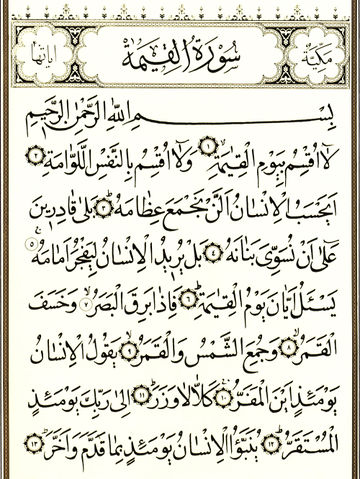 مكية سورة القيمة اياتها
بسم الله الرحمن الرحيم
لا اقسم بيوم القيمة ١ ولا اقسم بالنفس اللوامة ٢
ايحسب الانسان الن نجمع عظامه ٣ بلى قادرين
على ان نسوي بنانه ٤ بل يريد الانسان ليفجر امامه ٥
يسئل ايان يوم القيمة ٦ فاذا برق البصر ٧ وخسف
القمر ٨ وجمع الشمس والقمر ٩ يقول الانسان
يومئذ اين المفر ١٠ كلا لا وزر ١١ الى ربك يومئذ
المستقر ١٢ ينبؤا الانسان يومئذ بما قدم واخر ١٣